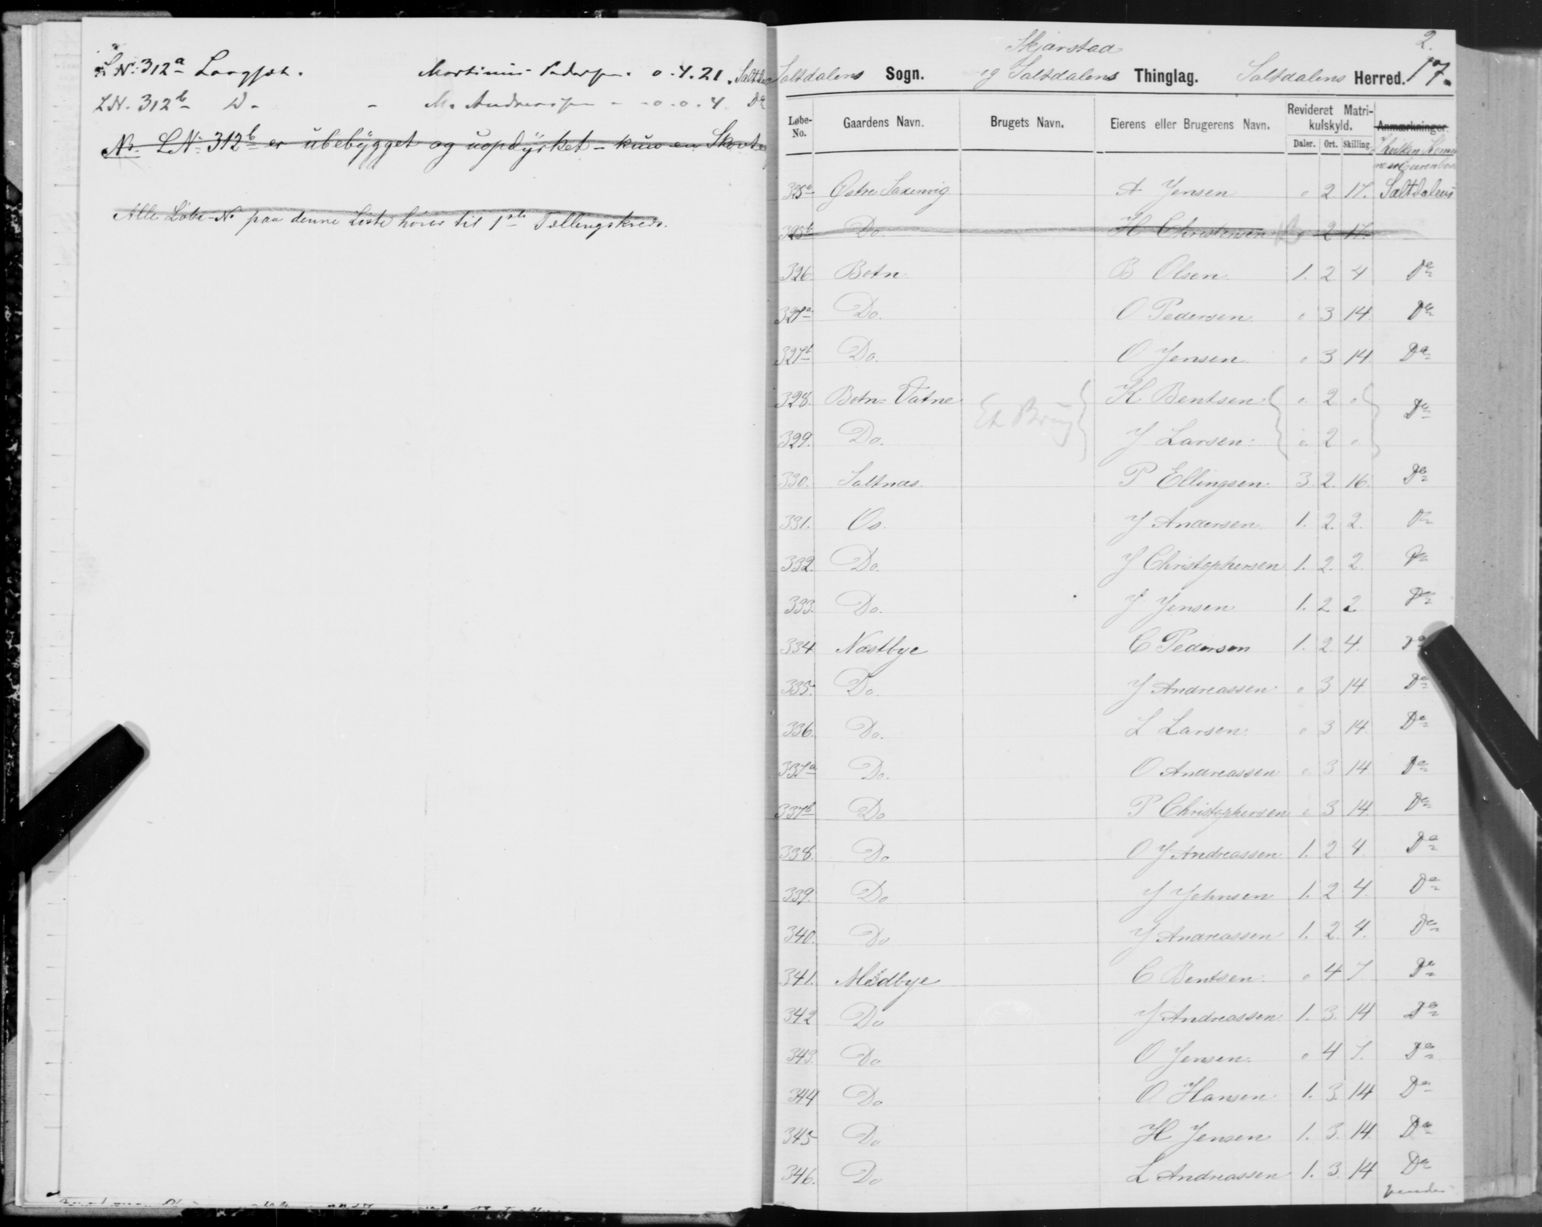 L N. 312a Langset. Martinus Pedersen. 0.4.21. Saltda
L.N. 312b D. - M. Andreassen - 0.0.4. Do
No. LN. 312b er ubebygget og uopdyrket - kun en
Alle Löbe-No paa denne Liste hörer til 1ste Tællingskreds.
Skjerstad 2.
Saltdalens Sogn. og Saltdalens Thinglag. Saltdalens Herred. 17.
Løbe-No. Gaardens Navn. Brugets Navn. Eierens eller Brugerens Navn. Revideret Matrikulskyld. Anmærkninger.
Daler. Ort. Skilling.
325a Østre Saxenvig A Jensen 0 2 17. Saltdalens
325b Do. H Christensen 0 2 17.
326 Botn B Olsen 1. 2 4 Do
327a Do. O Pedersen 0 3 14. Do
327b Do. O Jensen 0 3 14 Do
328. Botn-Vatne H Bentsen 0 2 0 Do
Et Brug
329. Do. J Larsen 0 2 0
330. Saltnæs P Ellingsen 3. 2. 16. Do
331. Os. J Andersen 1. 2. 2. Do
332. Do. J Christophersen 1. 2. 2. Do
333. Do. J Jensen 1. 2 2 Do
334 Næstbye C Pedersen 1. 2 4. Do
335. Do. J Andreassen 0 3 14 Do
336. Do. L Larsen 0 3 14 Do
337a Do. O Andreassen 0 3 14 Do
337b Do P Christophersen 0 3 14 Do
338. Do O J Andreassen 1. 2 4. Do
339. Do J Johnsen 1. 2 4. Do
340. Do J Andreassen 1. 2. 4. Do
341. Medbye C Bentsen 0 4 7. Do
342 Do J Andreassen 1. 3. 14 Do
343. Do O Jensen. 0 4 7. Do
344 Do O Hansen 1. 3. 14 Do
345 Do H Jensen 1. 3. 14. Do
346. Do L Andreassen 1. 3. 14 Do